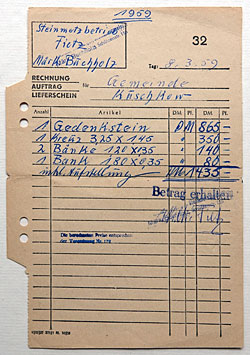 1959
Steinmetzbetrieb
Fietz
Märk. Buchholz
32
Tag: 8.3.59
RECHNUNG
AUFTRAG für Gemeinde
LIEFERSCHEIN Küschkow
Anzahl Artikel DM Pf. DM Pf.
1 Gedenkstein DM 865,-
1 Kreuz 325 x 145 " 350,-
2 Bänke 120 x 035 " 140,-
1 Bank 180 x 035 " 80,-
inkl. Aufstellung DM 1435,-
Betrag erhalten
Die berechneten Preise entsprechen
der Verordnung Nr.